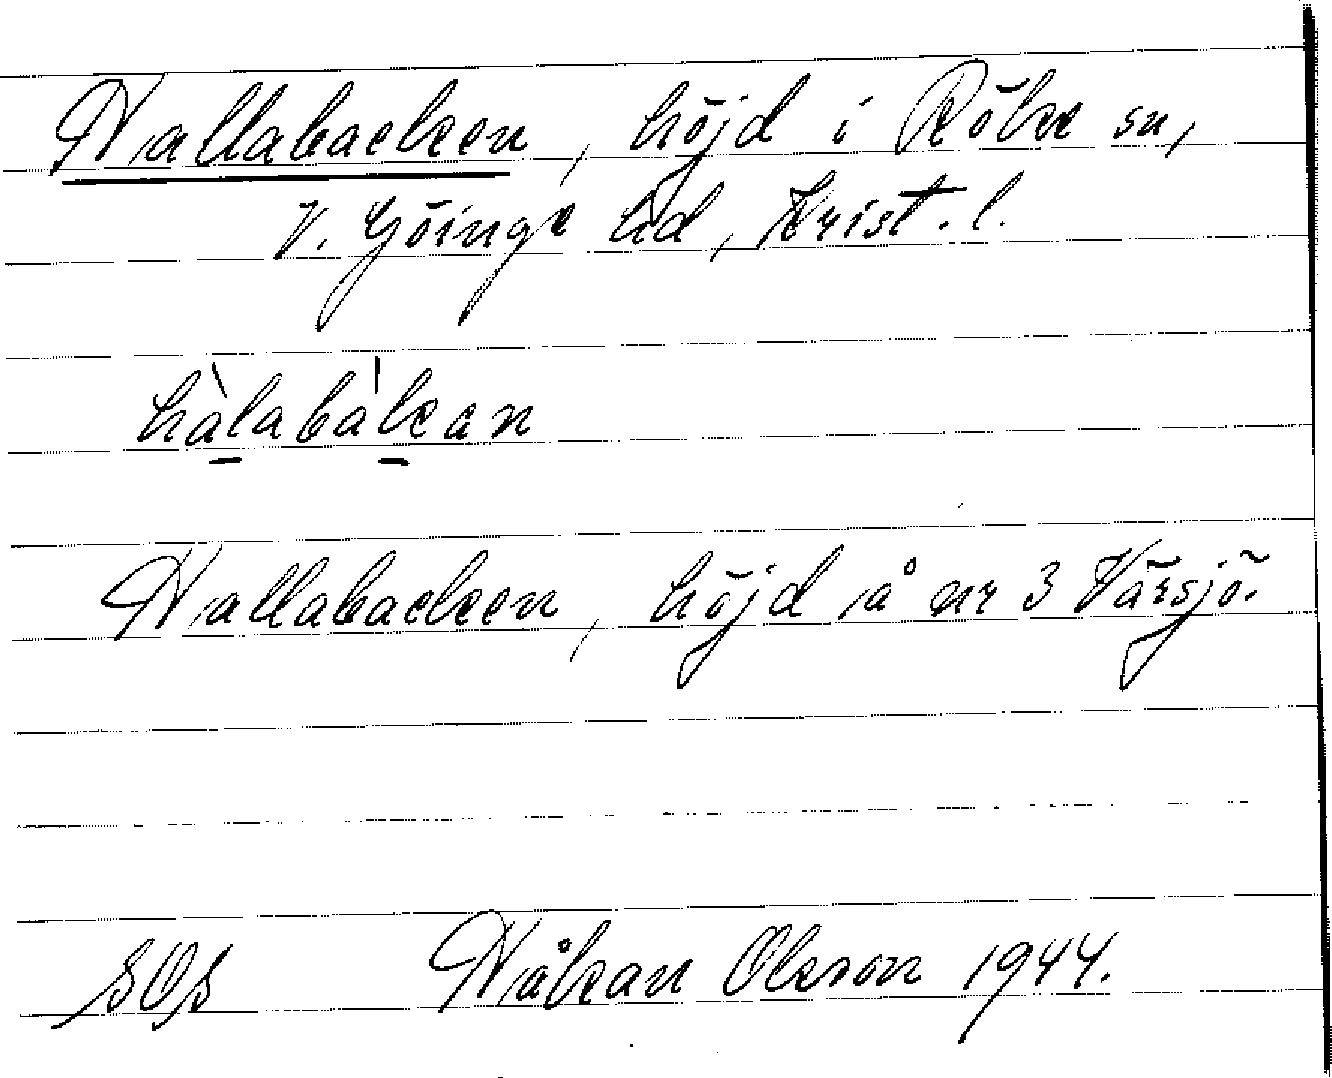 Hallabacken, höjd i Röke sn,
V. Göinge hd, Krist. l.
hàlabákan
Hallabacken, höjd å nr 3 Värsjö.
SOS Håkan Olsson 1944.